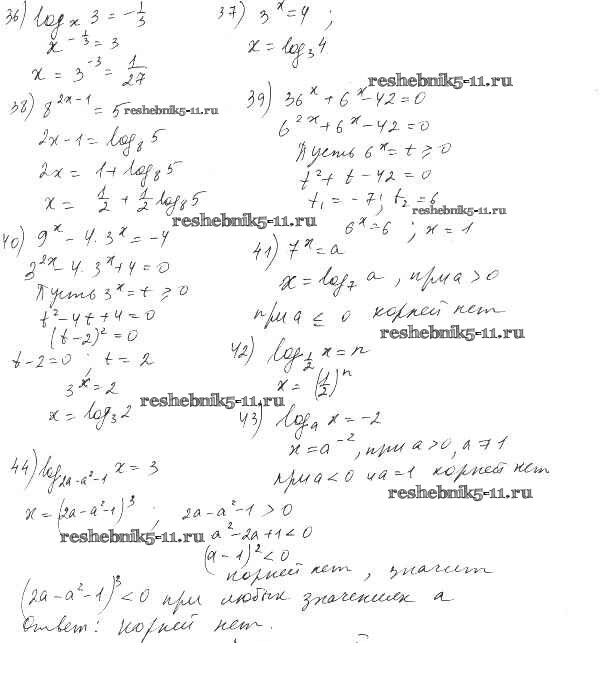 36) log_x 3 = -1/3
x^(-1/3) = 3
x = 3^(-3) = 1/27
37) 3^x = 4 ;
x = log_3 4
reshebnik5-11.ru
38) 8^(2x-1) = 5
reshebnik5-11.ru
2x-1 = log_8 5
2x = 1 + log_8 5
x = 1/2 + 1/2 log_8 5
39) 36^x + 6^x - 42 = 0
6^(2x) + 6^x - 42 = 0
Пусть 6^x = t ≥ 0
t² + t - 42 = 0
t_1 = -7 ; t_2 = 6
reshebnik5-11.ru
6^x = 6 ; x = 1
reshebnik5-11.ru
40) 9^x - 4·3^x = -4
3^(2x) - 4·3^x + 4 = 0
Пусть 3^x = t ≥ 0
t² - 4t + 4 = 0
(t-2)² = 0
t-2 = 0 ; t = 2
3^x = 2
x = log_3 2
reshebnik5-11.ru
41) 7^x = a
x = log_7 a , при a > 0
при a ≤ 0 корней нет
reshebnik5-11.ru
42) log_(1/2) x = n
x = (1/2)^n
43) log_a x = -2
x = a^(-2), при a > 0, a ≠ 1
при a < 0 и a = 1 корней нет
reshebnik5-11.ru
44) log_(2a-a²-1) x = 3
x = (2a-a²-1)³ ; 2a-a²-1 > 0
reshebnik5-11.ru
a²-2a+1 < 0
(a-1)² < 0
корней нет, значит
(2a-a²-1)³ < 0 при любых значениях a
Ответ: корней нет.